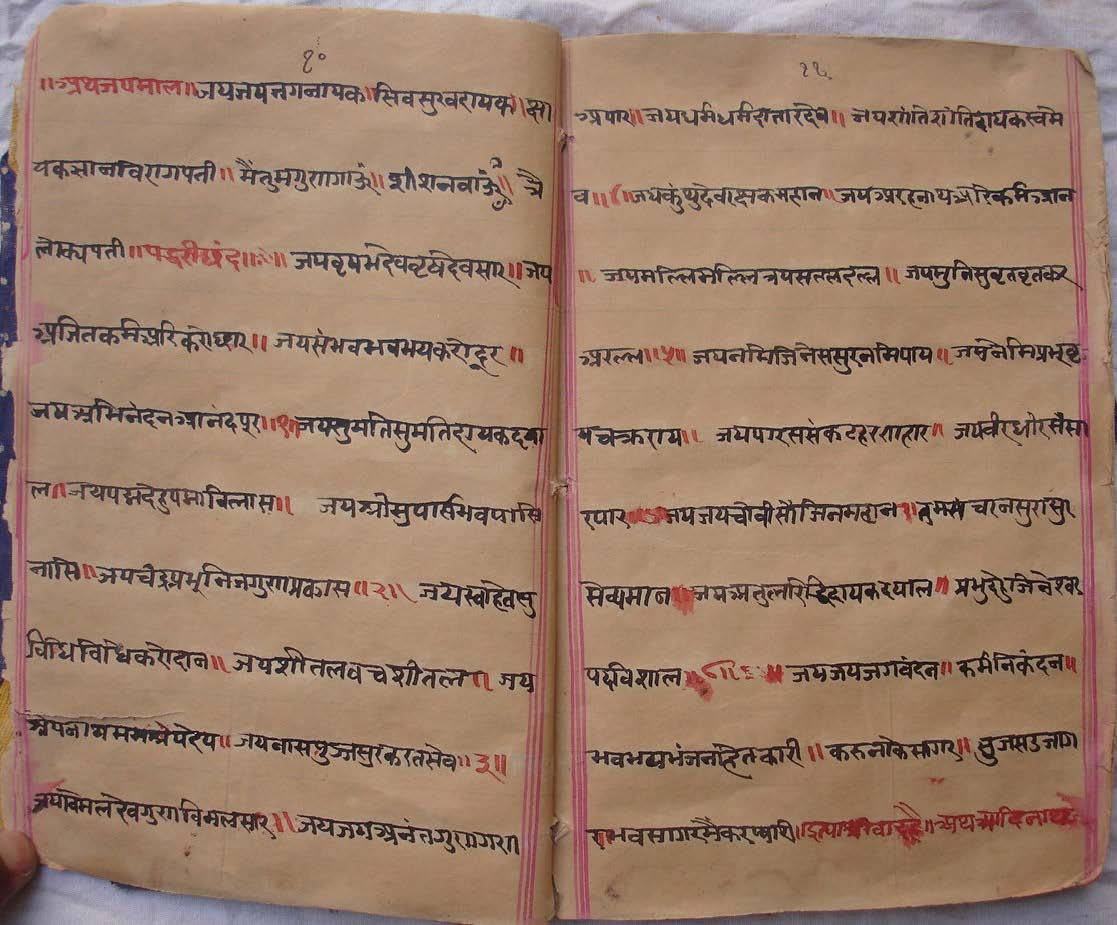 १०
॥अथजपमाल॥जयजयनगनायक।सिवसुखदायक।क्षा
यकसानविरागपती॥मैंतुमगुणगाऊं॥शीशनवाऊं॥त्रै
लोक्यपती॥पद्धरीछंद॥जयवृषभदेववृषदेवसार॥जय
अजितकर्मअरिकरोछार॥जयसंभवभवभयकरोदूर॥
जयअभिनंदनआनंदपूर॥१॥जयसुमतिसुमतिदायकदया
ल॥जयपद्मदेहुपमाविलास॥जयश्रीसुपार्सभवपासि
नासि॥जयचंद्रप्रभूनिजगुणप्रकास॥२॥जयस्वहेतसु
विधिविधिकरोदान॥जयशीतलवचशीतल॥जय
जयवासपुज्जसुरकरतसेव॥३॥
जयविमलदेवगुणविमलसार॥जयजगअनंतगुणगण
११
अपार॥जयधर्मधर्मदातारदेव॥जयशांतिशांतिदायकस्वमे
व॥४॥जयकुंथुदेवरक्षकमहान॥जयअरहनाथअरिकर्मआन
॥जयमल्लिमल्लित्रयसल्लदल्ल॥जयमुनिसुवृतवृतकर
अरल्ल॥५॥जयनमिजिनेससुरनमिपाय॥जयनेमिप्रभुवृ
षचक्रराय॥जयपारससंकटहरणहार॥जयवीरधीरसैंसा
रपार॥जयजयचौवीसौजिनमहान॥तुमरूचरनसुरासुर
सेव्यमान॥जयअतुलरिद्धिदायकदयाल॥प्रभुदेहुजिनेश्वर
पदविशाल॥६॥जयजयजगवंदन॥कर्मनिकंदन॥
भवभयभंजनहितकारी॥करुनाकेसागर॥सुजसउजाग
र॥भवसागरमैंकरप्यारी॥इत्याशीर्वादः॥अथआदिनाथ